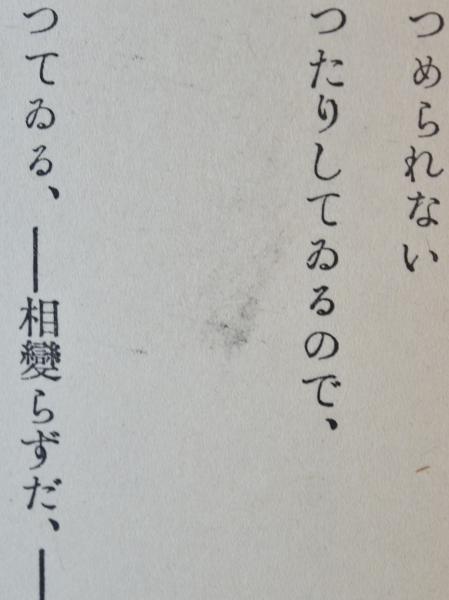 つめられない
つたりしてゐるので、
つてゐる、――相變らずだ、―